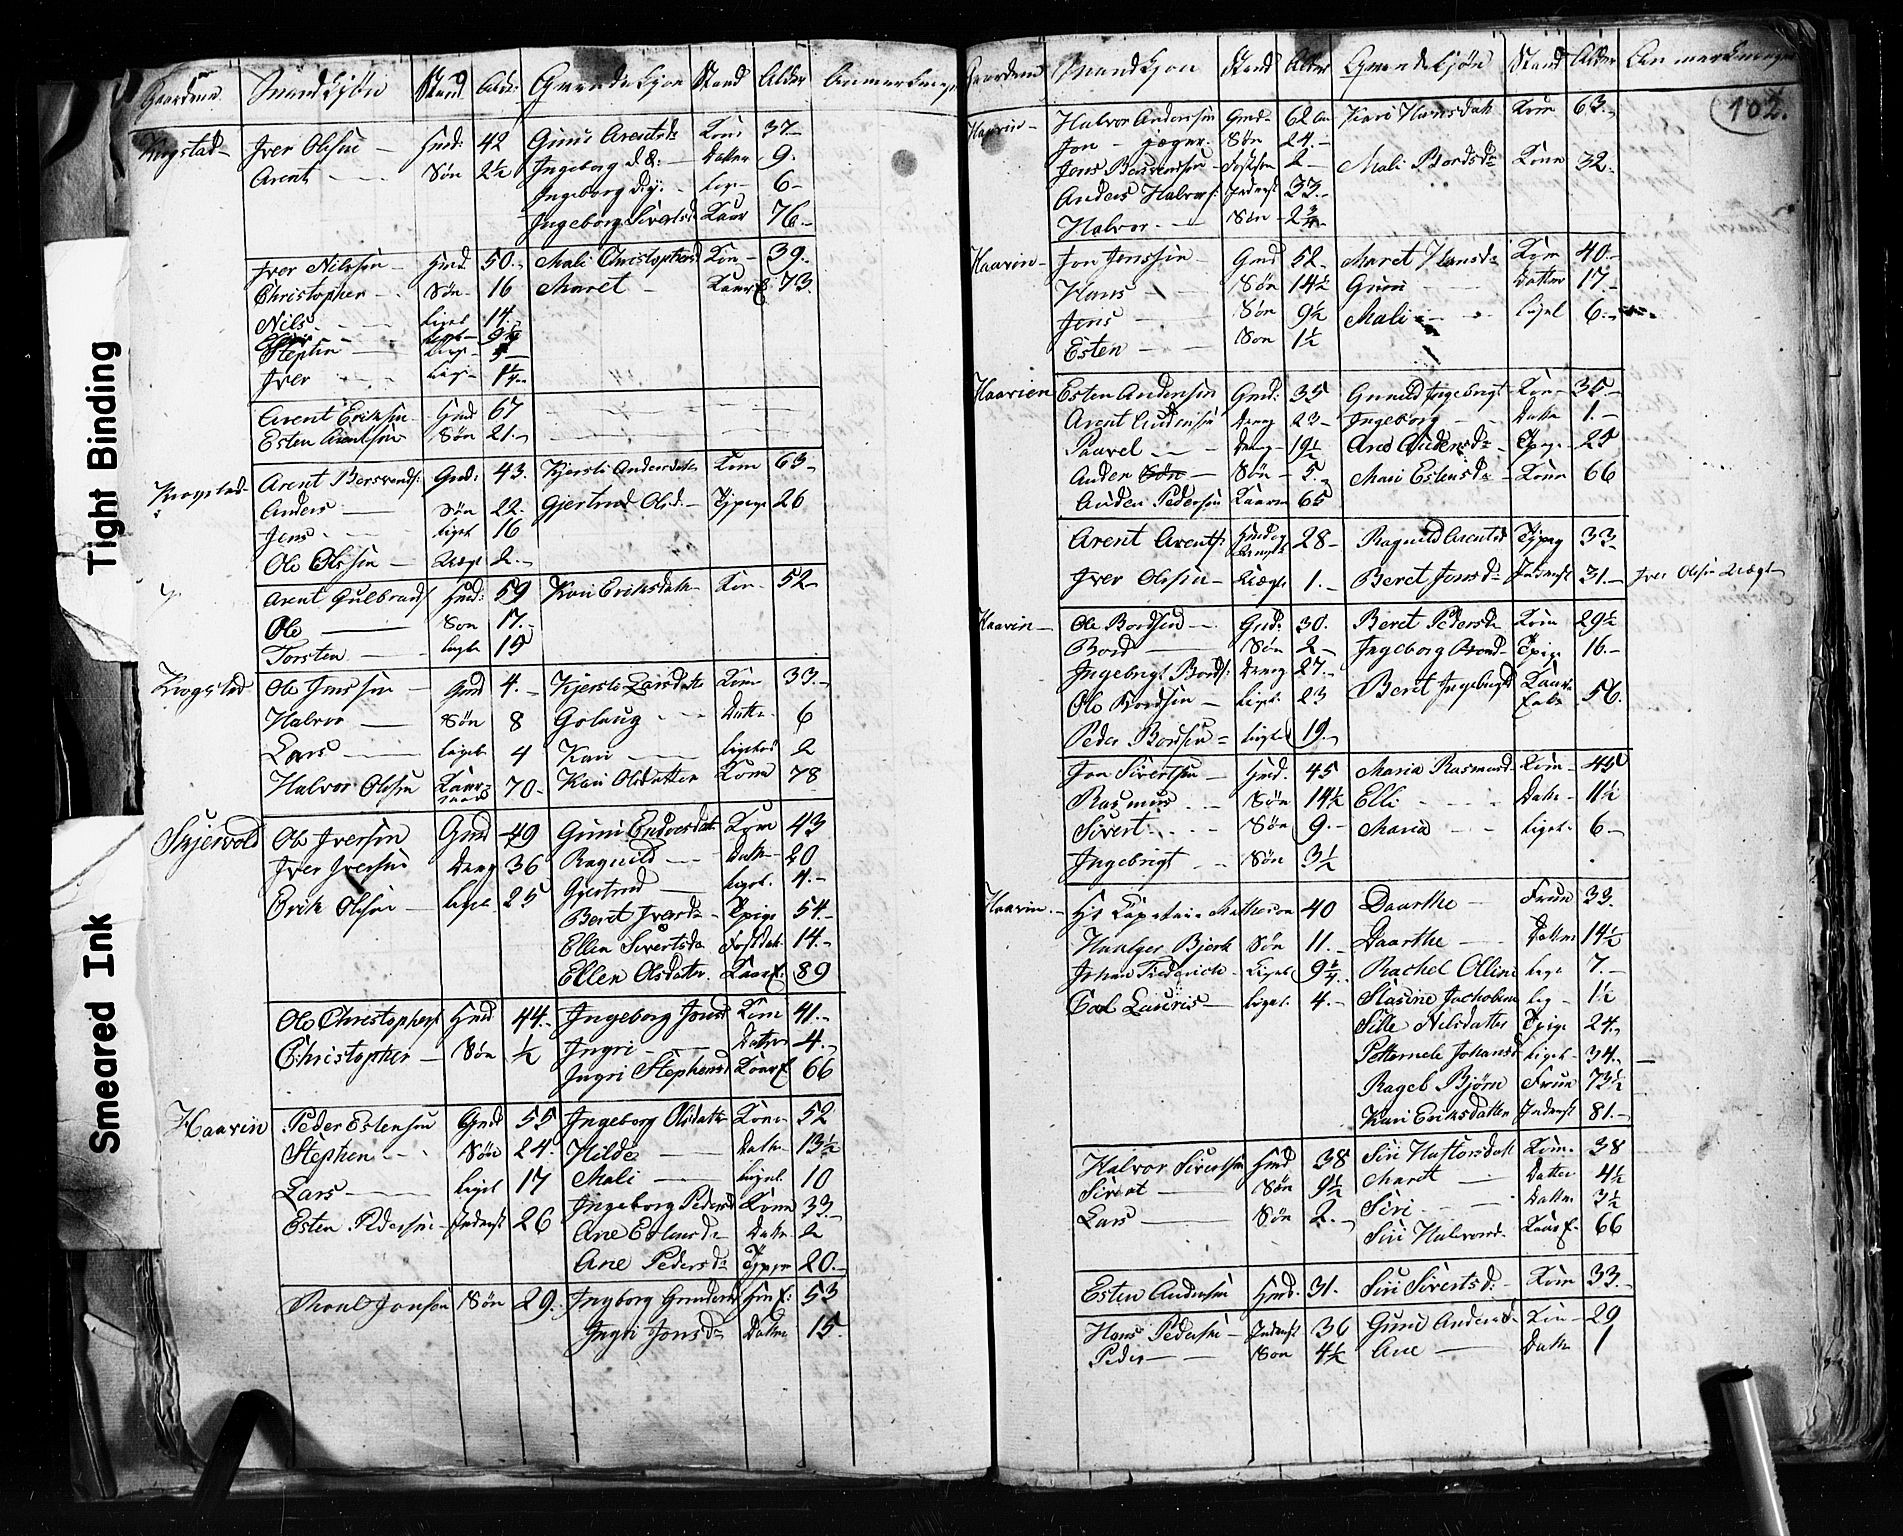 Tight Binding
Smeared Ink
Gaardene Mandkjön Stand Alder Qvindekjön Stand Alder Anmerkninge
Krogstad Iver Olssen Gmd: 42 Guru Arentsd: Kone 37
Arent Søn 2½ Ingeborg d.æ: Datter 9.
Ingeborg d.y. lige 6
Ingeborg Sivertsd: Kaar 76
Iver Nilssen Hmd 50 Mali Christophersd Kone 39
Christopher Søn 16 Maret Kaar E 73
Nils ligel 14
Stephen
Iver lige 1¼
Arent Eriksen Hmd 67
Esten Arentsen Søn 21
Krogstad Arent Bersvends: Gmd: 43 Kjersti Andersdatr Kone 63
Anders Søn 22 Gjertrud Olsd. Tjpige 26
Jens ligel 16
Ole Olssen Lægd 2
Arent Gulbrands Hmd: 59 Kari Eriksdatr Kone 52
Ole Søn 17
Torsten ligl 15
Krogstad Ole Jenssen Gmd 4. Kjersti Larsdatr Kone 33
Halvor Søn 8 Golaug Datter 6
Lars ligel 4 Kari ligeled 2
Halvor Olssen Kaarmand 70 Kari Olsdatter Kone 78
Skjervold Ole Iversen Gmd 49 Guru Endresdatr Kone 43
Iver Iversen Dreng 36 Ragnild Datter 20
Erik Olssen ligel 25 Gjertrud ligel. 4
Beret Iversd: Tpige 54
Ellen Sivertsdr Fostdatr 14
Ellen Olsdatr. Kaar E. 89
Ole Christophers Hmd 44 Ingeborg Jonsd Kone 41
Christopher Søn ½ Ingri Datter 4
Ingri Stephensd Kaar E 66
Haavin Peder Estensen Gmd 55 Ingeborg Olsdatter Kone 52
Stephen Søn 24 Hilde Datter 13½
Lars ligel 17 Mali ligel. 10
Esten Pedersen Inderst 26 Ingeborg Pedersd Kone 33
Ane Estensdr Datter 2
Ane Pedersdr Tjpige 20
Jonsen Søn 29 Ingborg Gundersd 53
Ingri Jonsdr Datter 15
Gaardene Mandkjon Stand Alder Qvindekjön Stand Alder Anmerkninger
102.
Haavin Halvor Anderssen Gmd 62 Kari Hansdatr Kone 63
Jon Jæger Søn 24
Jens Fostsøn 2 Mali Bordsdr Kone 32
Anders Halvors: Inderst 33
Halvor Søn 2¾
Haavin Jon Jenssen Gmd 52 Maret Hansdr Kone 40
Hans Søn 14½ Guru Datter 17
Jens Søn 9½ Mali ligel 6
Esten Søn 1½
Haavien Esten Andersen Gmd: 35 Gunild Ingebrigts Kone 35
Arent Andersen Dreng 23 Ingeborg Datter 1
Paavel Dreng 19½ Ane Andersdr Tpige 25
Anders Søn Søn 5 Mari Estensdr Kone 66
Anders Pedersen Kaarm 65
Arent Arents: 28 Ragnild Arentsd Tjpig 33
Iver Olssen Lægds 1 Beret Jonsdr Inderst 31 Iver Olssen Lægd
Haavin Ole Bordsen Gmd: 30 Beret Pedersdr Kone 29½
Bord Søn 2 Ingeborg Bords Tpige 16
Ingebrigt Bords: Dreng 27 Beret Ingebrigtsd Kaar 56
Ole Bordsen ligel 23
Peder Bordsen ligel 19
Jon Sivertsen Hmd. 45 Maria Rasmusd Kone 45
Rasmus Søn 14½ Elli Datter 11½
Sivert Søn 9 Maria ligel 6
Ingebrigt Søn 3½
Haavin Hr Capitain Matheson 40 Daarthe Fruu 33
Bjerk Søn 11 Daarthe Datter 14½
Johan Friderich Ligel 9¼ Rachel Olline lige 7
Carl Lauris ligel 4 Stasine Jachobine lig 1½
Sille Nilsdatter Tpige 24
Petternele Johansd ligel 34
Ragel Bjørn Fruu 73½
Kari Eriksdatter Inderst 81
Halvor Sivertsen Hmd 38 Siri Kone 38
Sivert Søn 9½ Maret Datter 4½
Lars Søn 2 Siri Datter 3½
Siri Halvorsd. Kaar E. 66
Esten Andersen Hmd. 31 Siri Sivertsd: Kone 33
Hans Pedersen Inderst 36 Guru Andersd. Kone 29
Peder Søn 4½ Ane Datter 1